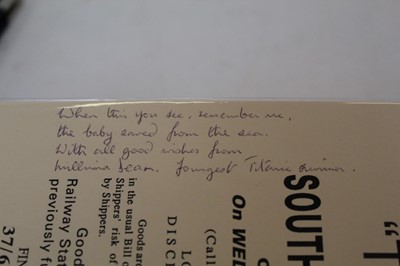 When this you see, remember me,
the baby saved from the sea.
With all good wishes from
Millvina Dean. Youngest Titanic survivor.
"T
SOUTH
On WED
(Call
LO
DISCH
Goods are
in the usual Bill o
Shippers' risk of
by Shippers.
Good
Railway Stat
previously f
FIN
37/6